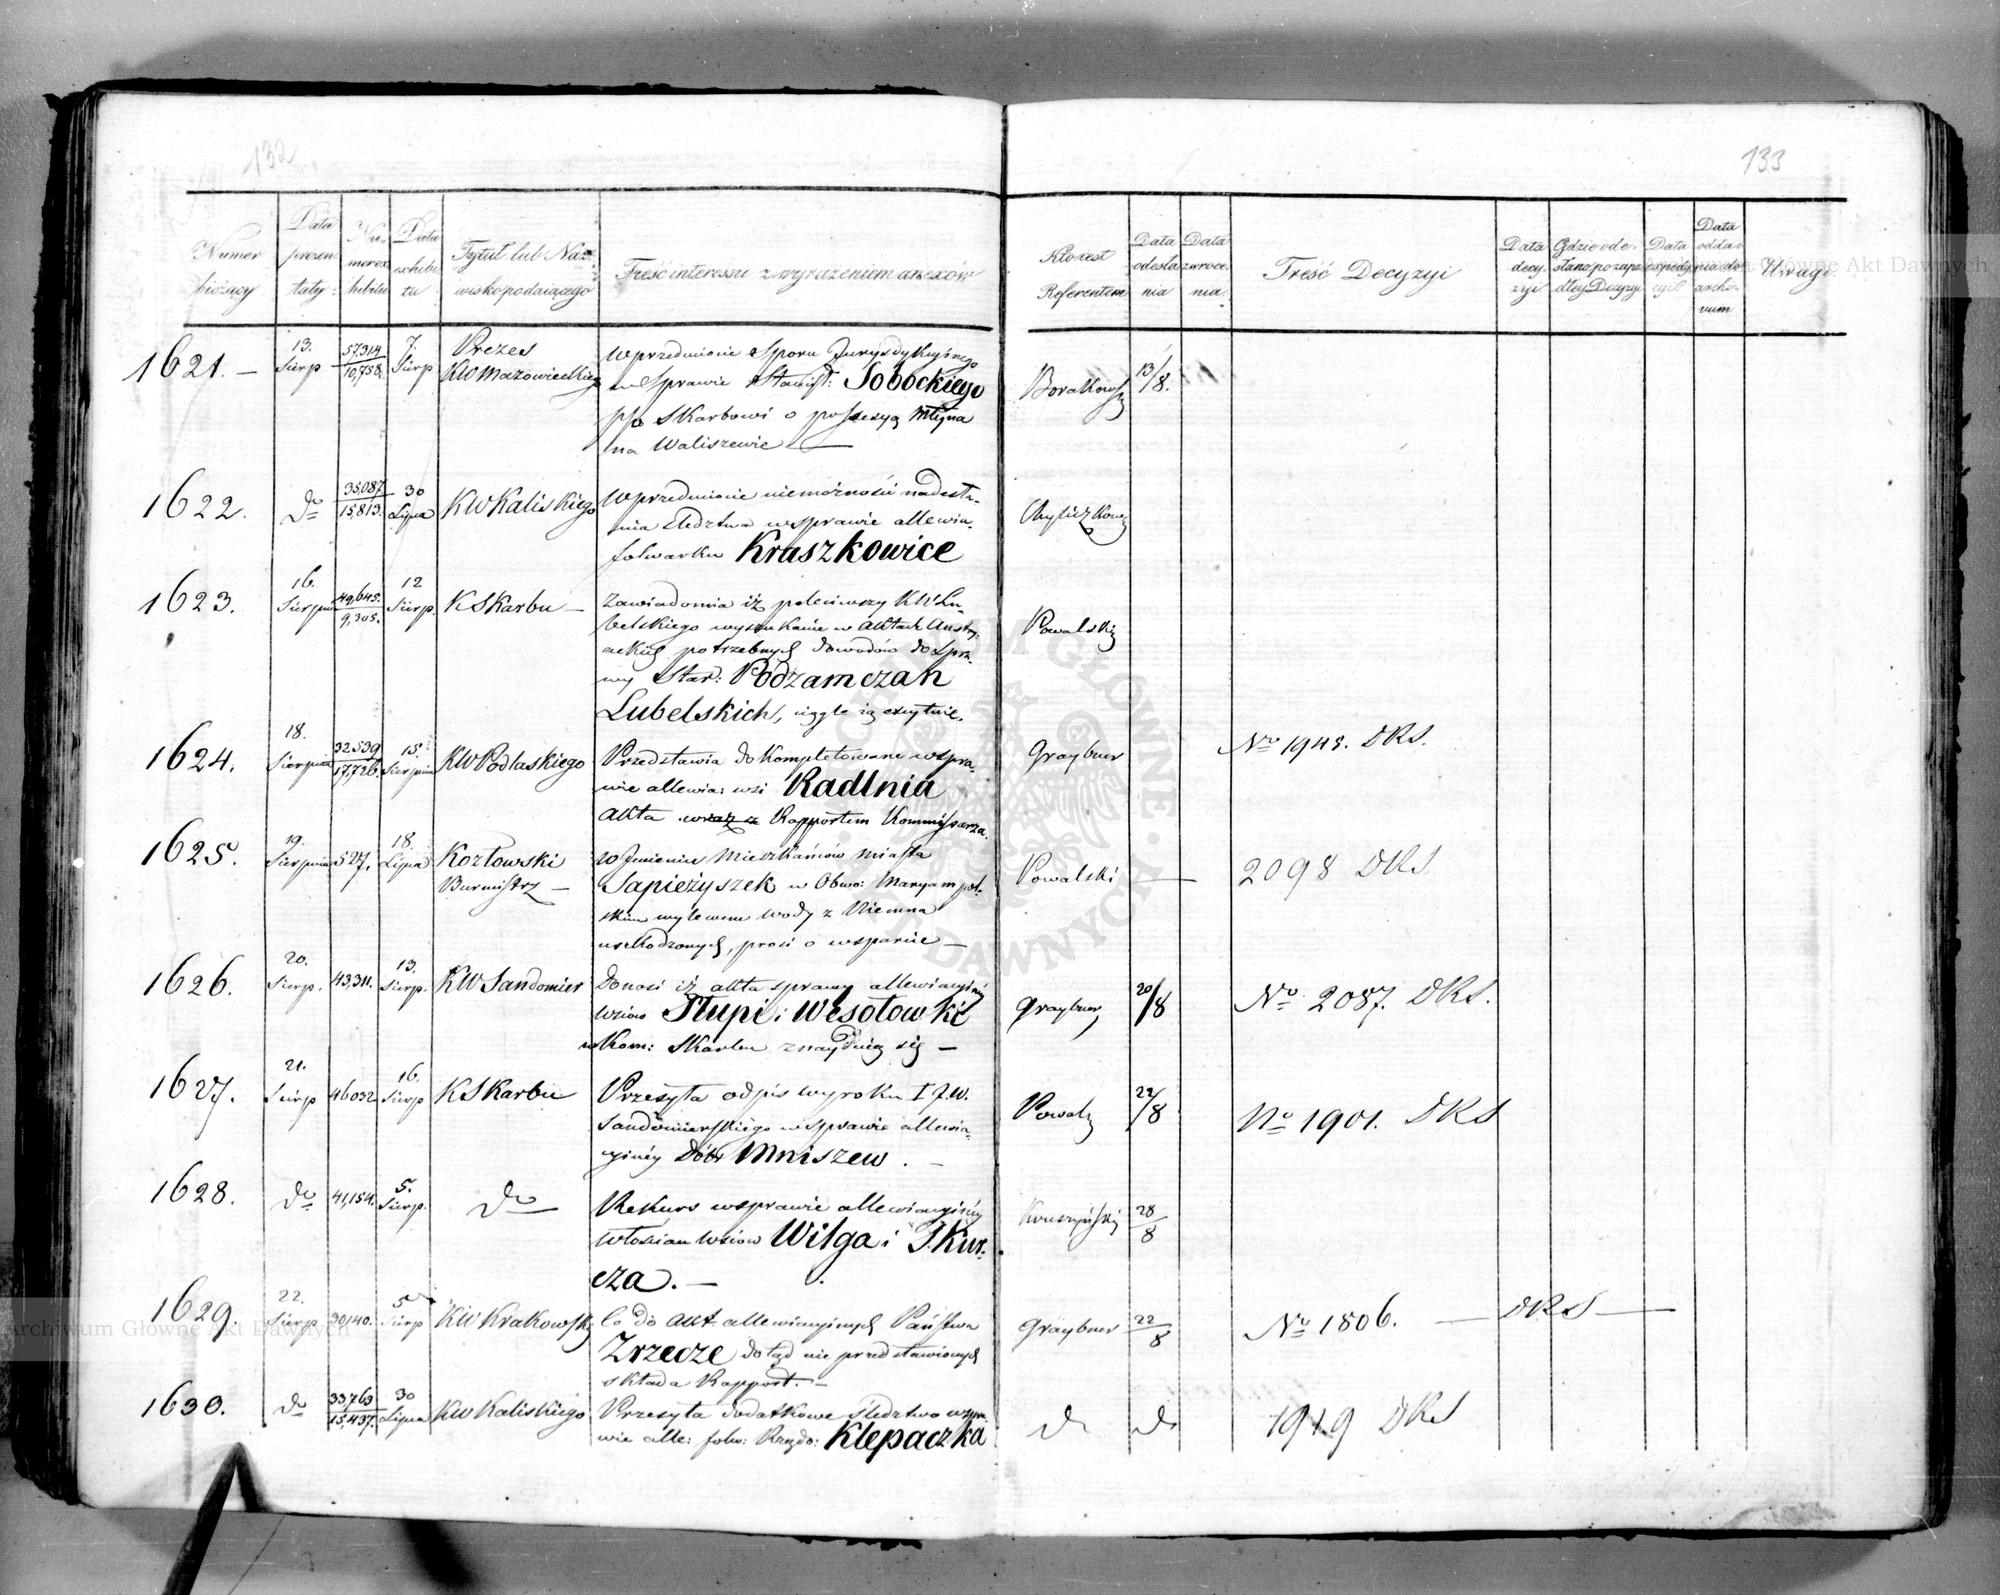 132
133
Numer bieżący
Data prezentaty
Numer exhibitu
Data exhibitu
Tytuł lub Nazwisko podaiącego
Treść interessu z wyrażeniem anexów
Kto iest Referentem
Data odesłania
Data zwrócenia
Treść Decyzyi
Data decyzyi
Gdzie odesłano po zapadłey Decyzyi
Data expedycyi
Data oddania do archivum
Uwagi
1621. —
13. Sierp
57,314 10,758.
7. Sierp
Prezes
KW Mazowieckieg
w przedmiocie Sporu Jurysdykcyinego
w Sprawie Stanisł: Sobockiego
p/so Skarbowi o possessyą Młyna
na Waliszewie —
13/8.
1622.
do
35,087 15,813.
30 Lipca
KW Kaliskiego
W przedmiocie niemożności nadesła-
nia śledztwa w sprawie allewia.
folwarku Kraszkowice
1623.
16. Sierpnia
49,645. 9,305.
12 Sierp.
K Skarbu —
Zawiadomia iż poleciwszy KW Lu-
belskiego wyszukanie w Aktach Austry-
ackich potrzebnych dowodów do Spra-
wy Star: Podzamczan
Lubelskich, ciągle ią excytuie.
Powalski
1624.
18. Sierpnia
32539 17,726.
15. Sierpnia
KW Podlaskiego
Przedstawia dokompletowane w spra-
wie allewia: wsi Radlnia
Akta wraz z Rapportem Kommissarza.
Graybner
No 1948. DKS.
1625.
19. Sierpnia
527.
18. Lipca
Kozłowski
Burmistrz —
W Imieniu Mieszkańców miasta
Sapieżyszek w Obwo: Maryampol-
skim wylewem wody z Niemna
uszkodzonych, prosi o wsparcie —
Powalski
2098 DKS
1626.
20. Sierp.
43,311.
13. Sierp.
KW Sandomier
Donosi iż akta sprawy allewiacyinej
wsiów Słupi i Wesołowki
w Kom: Skarbu znayduią się —
Graybner
20/8
No 2087. DKS.
1627.
21. Sierp
46032
16. Sierp
K Skarbu
Przesyła odpis wyroku T. J. W.
Sandomierskiego w sprawie allewia-
cyinéy Dóbr Mniszew. —
Powals
22/8
No 1901. DKS
1628.
do
41,154.
5. Sierp.
do
Rekurs w sprawie allewiacyinéy
włościan wsiów Wilga i Skur-
cza. —
Kruszyński
28/8
1629.
22. Sierp
30140.
5 Sierp
KW Krakowsk
Co do akt allewiacyinych Państwa
Zrzecze dotąd nie przedstawionych
składa Rapport. —
Graybner
22/8
No 1806. — DKS —
1630.
do
33,763 15,437.
30 Lipca
KW Kaliskiego
Przesyła dodatkowe śledztwo w spra-
wie alle: folw: Rządo: Klepaczka
do
do
1919 DKS